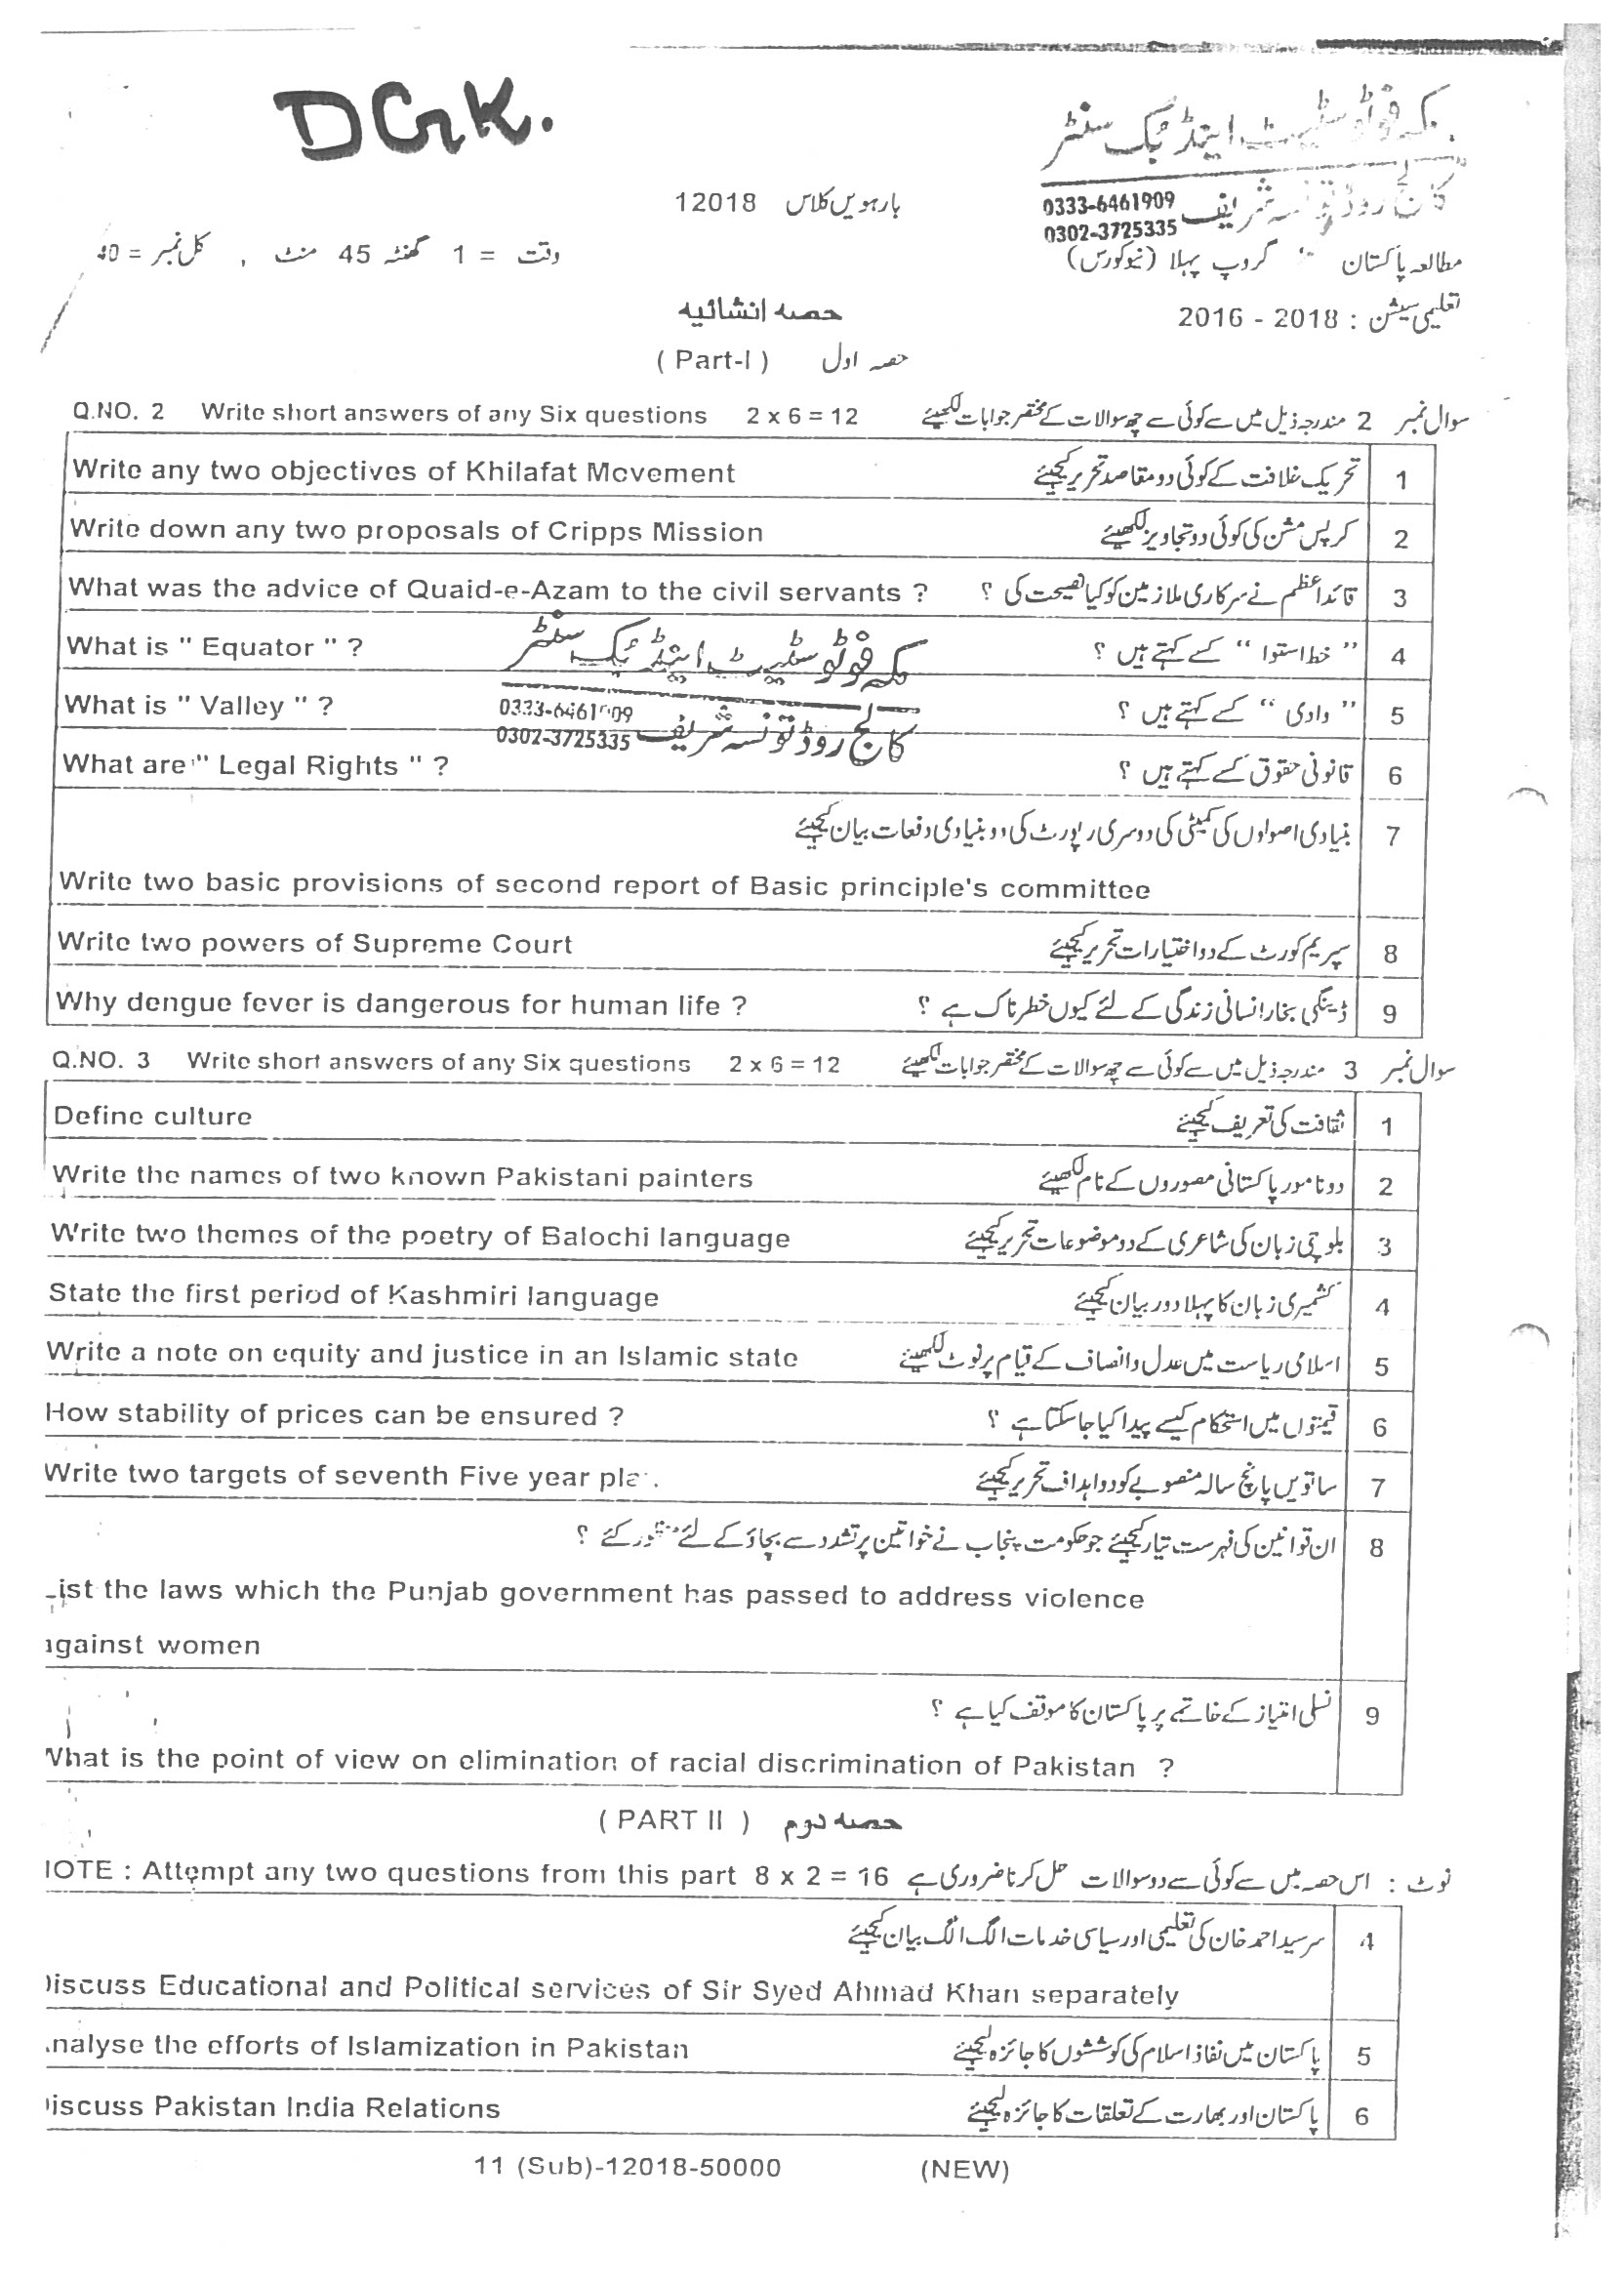 DGK.
مکہ فوٹو سٹیٹ اینڈ بک سنٹر
0333-6461909
0302-3725335
کالج روڈ تونسہ شریف
بارہویں کلاس 12018
وقت = 1 گھنٹہ 45 منٹ , کل نمبر = 40
مطالعہ پاکستان گروپ پہلا (نیوکورس)
حصہ انشائیہ
تعلیمی سیشن : 2018 - 2016
حصہ اول ( Part-I )
Q.NO. 2 Write short answers of any Six questions 2 x 6 = 12 سوال نمبر 2 مندرجہ ذیل میں سے کوئی سے چھ سوالات کے مختصر جوابات لکھیئے
Write any two objectives of Khilafat Movement تحریک خلافت کے کوئی دو مقاصد تحریر کیجیئے 1
Write down any two proposals of Cripps Mission کرپس مشن کی کوئی دو تجاویز لکھیئے 2
What was the advice of Quaid-e-Azam to the civil servants ? قائداعظم نے سرکاری ملازمین کو کیا نصیحت کی ؟ 3
What is " Equator " ? " خط استوا " کسے کہتے ہیں ؟ 4
مکہ فوٹو سٹیٹ اینڈ بک سنٹر
What is " Valley " ? " وادی " کسے کہتے ہیں ؟ 5
0333-6461909
0302-3725335
کالج روڈ تونسہ شریف
What are " Legal Rights " ? قانونی حقوق کسے کہتے ہیں ؟ 6
بنیادی اصولوں کی کمیٹی کی دوسری رپورٹ کی دو بنیادی دفعات بیان کیجیئے 7
Write two basic provisions of second report of Basic principle's committee
Write two powers of Supreme Court سپریم کورٹ کے دو اختیارات تحریر کیجیئے 8
Why dengue fever is dangerous for human life ? ڈینگی بخار انسانی زندگی کے لئے کیوں خطرناک ہے ؟ 9
Q.NO. 3 Write short answers of any Six questions 2 x 6 = 12 سوال نمبر 3 مندرجہ ذیل میں سے کوئی سے چھ سوالات کے مختصر جوابات لکھیئے
Define culture ثقافت کی تعریف کیجیئے 1
Write the names of two known Pakistani painters دو نامور پاکستانی مصوروں کے نام لکھیئے 2
Write two themes of the poetry of Balochi language بلوچی زبان کی شاعری کے دو موضوعات تحریر کیجیئے 3
State the first period of Kashmiri language کشمیری زبان کا پہلا دور بیان کیجیئے 4
Write a note on equity and justice in an Islamic state اسلامی ریاست میں عدل و انصاف کے قیام پر نوٹ لکھیئے 5
How stability of prices can be ensured ? قیمتوں میں استحکام کیسے پیدا کیا جا سکتا ہے ؟ 6
Write two targets of seventh Five year ساتویں پانچ سالہ منصوبے کو دو اہداف تحریر کیجیئے 7
ان قوانین کی فہرست تیار کیجیئے جو حکومت پنجاب نے خواتین پر تشدد سے بچاؤ کے لئے کئے ؟ 8
ist the laws which the Punjab government has passed to address violence
gainst women
نسلی امتیاز کے خاتمے پر پاکستان کا موقف کیا ہے ؟ 9
What is the point of view on elimination of racial discrimination of Pakistan ?
( PART II ) حصہ دوم
IOTE : Attempt any two questions from this part 8 x 2 = 16 نوٹ : اس حصہ میں سے کوئی سے دو سوالات حل کرنا ضروری ہے
سرسید احمد خان کی تعلیمی اور سیاسی خدمات الگ الگ بیان کیجیئے 4
iscuss Educational and Political services of Sir Syed Ahmad Khan separately
nalyse the efforts of Islamization in Pakistan پاکستان میں نفاذ اسلام کی کوششوں کا جائزہ لیجیئے 5
iscuss Pakistan India Relations پاکستان اور بھارت کے تعلقات کا جائزہ لیجیئے 6
11 (Sub)-12018-50000 (NEW)